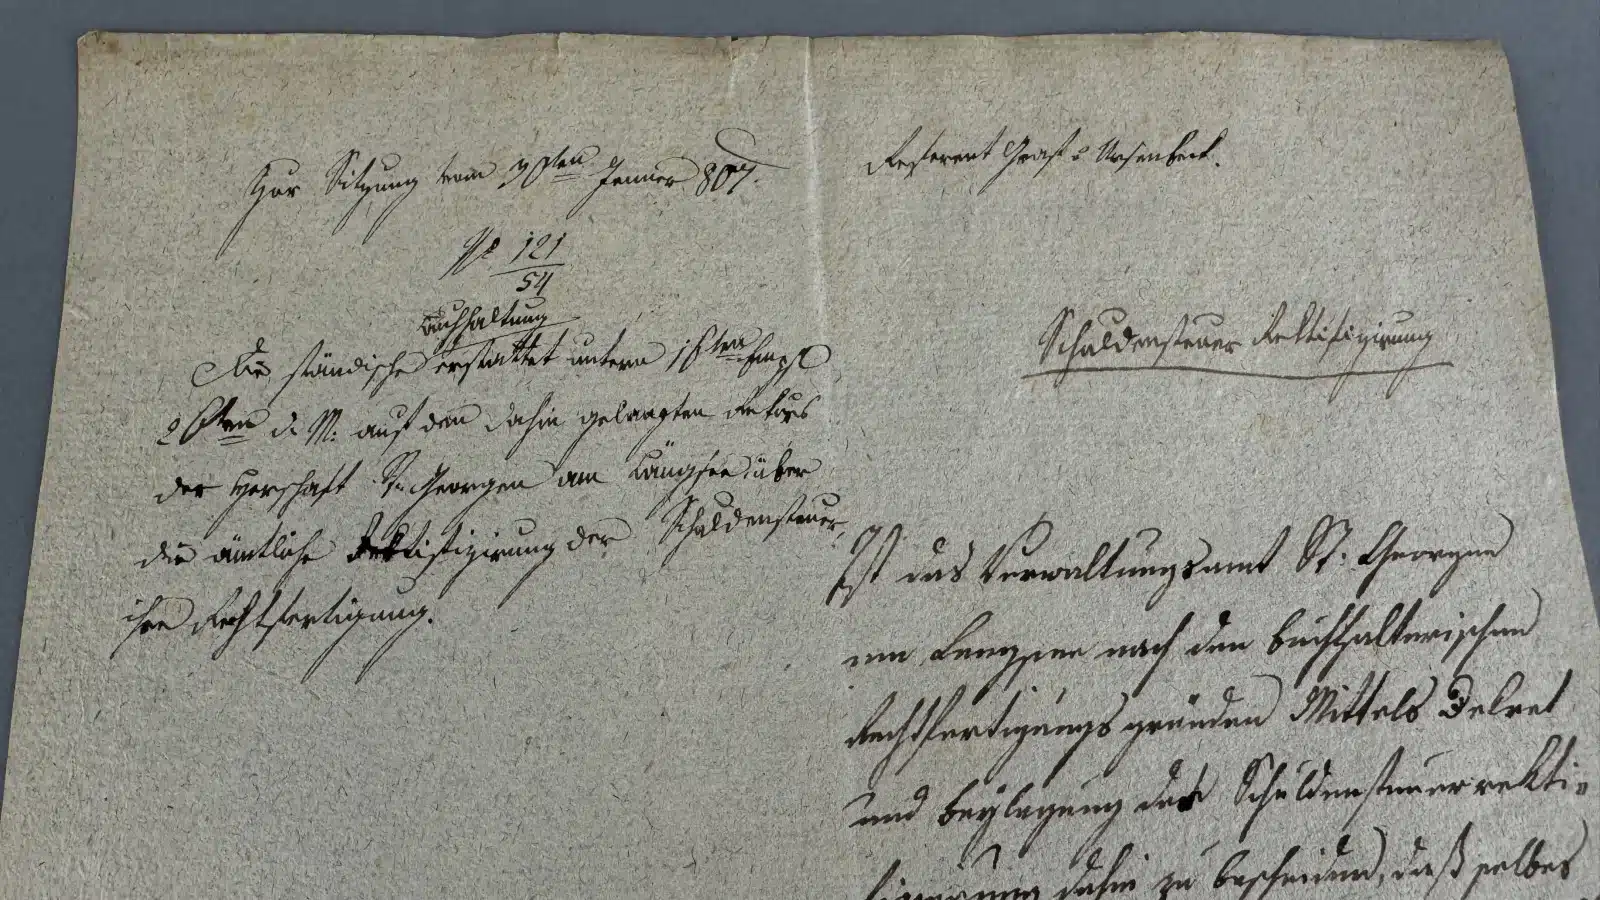 Zur Sitzung vom 30sten Jenner 807.
Nr. 121
54
Buchhaltung
Die ständische erstattet unterm 16ten Empf
26ten d. M. auf den dahin gelangten Rekurs
der Herschaft St. Georgen am Längsee über
die ämtliche Rektifizirung der Schuldensteuer,
ihre Rechtfertigung.
Referent Graf v Ursenbeck.
Schuldensteuer Rektifizirung
Ist das Verwaltungsamt St. Georgen
am Lengsee nach den buchhalterischen
Rechtfertigungsgründen Mittels Dekret
und Beylegung der Schuldensteuerrekti-
fizierung dahin zu bescheiden, daß selbes